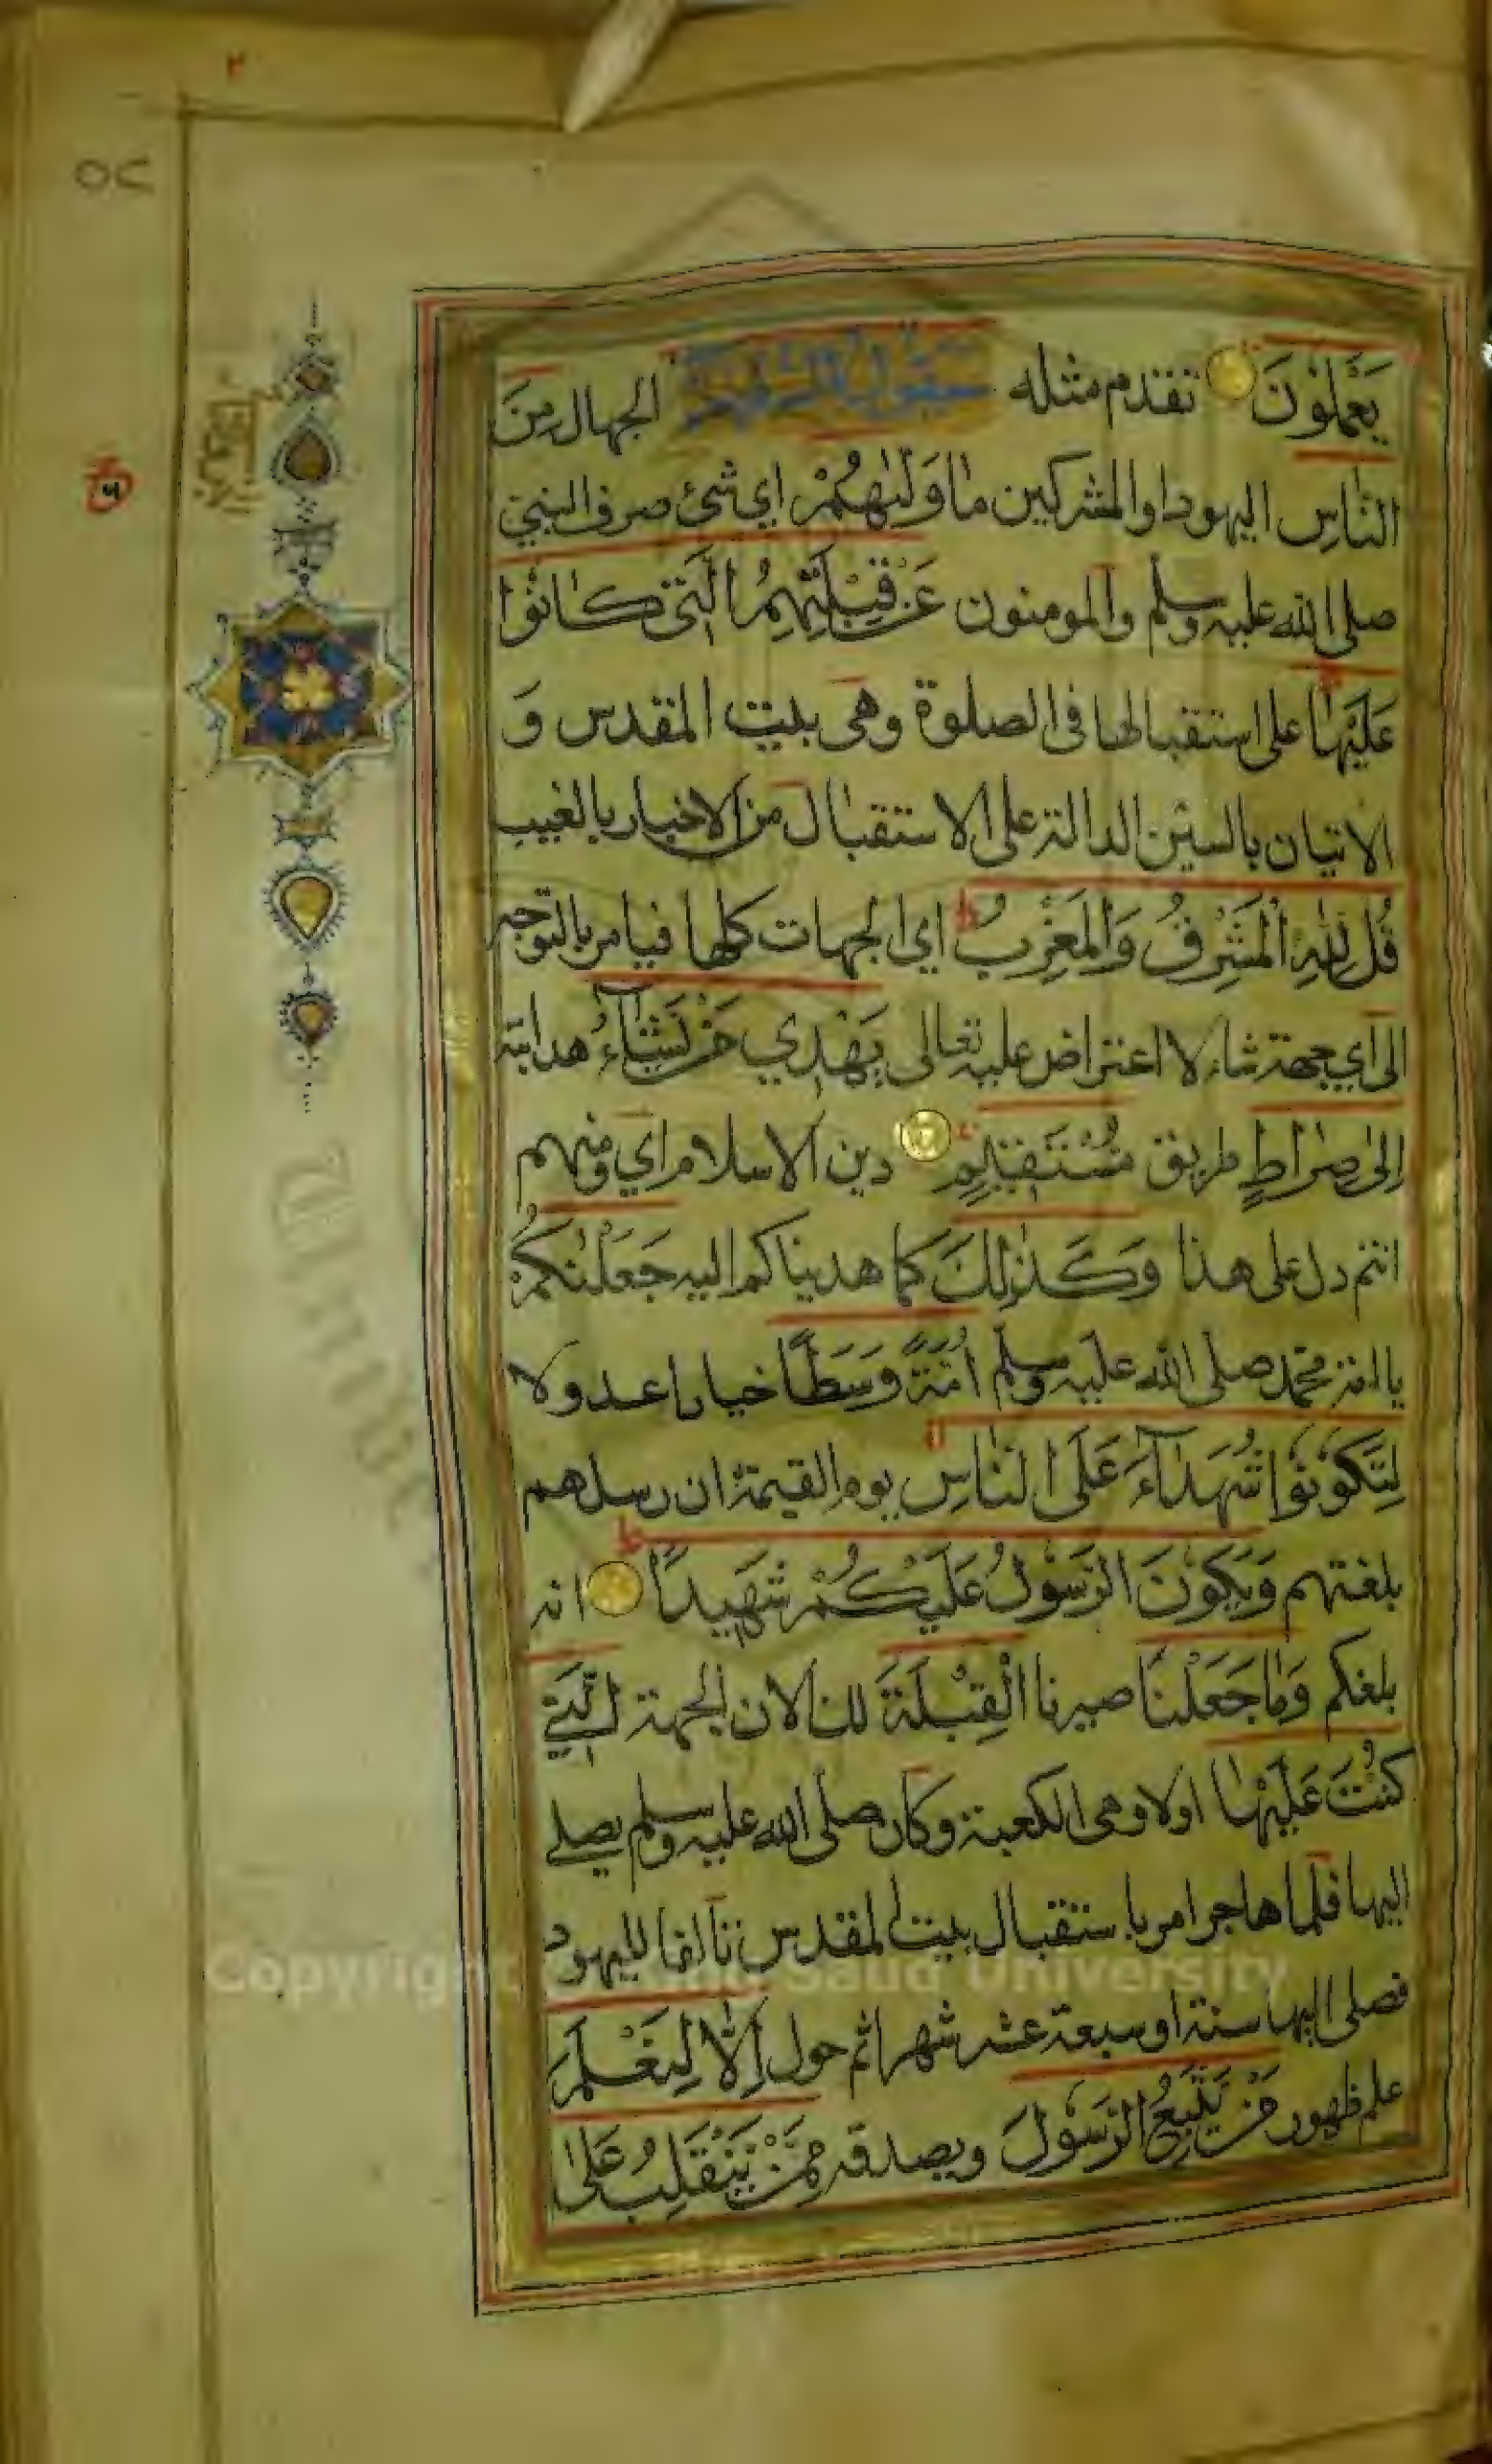 ٢
٥٢
يَعْمَلُوْنَ تقدم مثله سَيَقُوْلُ السُّفَهَاءُ الجهال مِنَ
النَّاسِ اليهود والمشركين مَا وَلّٰىهُمْ اي شئ صرف النبي
صلى الله عليه وسلم والمومنون عَنْ قِبْلَتِهِمُ الَّتِيْ كَانُوْا
عَلَيْهَا على استقبالها فى الصلوة وهى بيت المقدس و
الاتيان بالسين الدالة على الاستقبال من الاخبار بالغيب
قُلْ لِلّٰهِ الْمَشْرِقُ وَالْمَغْرِبُ ط اي الجهات كلها فيامر بالتوجه
الى اي جهة شاء لا اعتراض عليه تعالى يَهْدِيْ مَنْ يَّشَآءُ هدايته
اِلٰى صِرَاطٍ طريق مُّسْتَقِيْمٍ دين الاسلام اي ومنهم
انتم دل على هذا وَكَذٰلِكَ كما هديناكم اليه جَعَلْنٰكُمْ
يا امة محمد صلى الله عليه وسلم اُمَّةً وَّسَطًا خيارا عدولا
لِتَكُوْنُوْا شُهَدَآءَ عَلَى النَّاسِ يوم القيمة ان رسلهم
بلغتهم وَيَكُوْنَ الرَّسُوْلُ عَلَيْكُمْ شَهِيْدًا ط انه
بلغكم وَمَا جَعَلْنَا صيرنا الْقِبْلَةَ لك الان الجهة الَّتِيْ
كُنْتَ عَلَيْهَا اولا وهى الكعبة وكان صلى الله عليه وسلم يصلي
اليها فلما هاجر امر باستقبال بيت المقدس تألفا لليهود
فصلى اليها ستة او سبعة عشر شهرا ثم حول اِلَّا لِنَعْلَمَ
علم ظهور مَنْ يَّتَّبِعُ الرَّسُوْلَ ويصدقه مِمَّنْ يَّنْقَلِبُ عَلٰى
Copyright Saud University